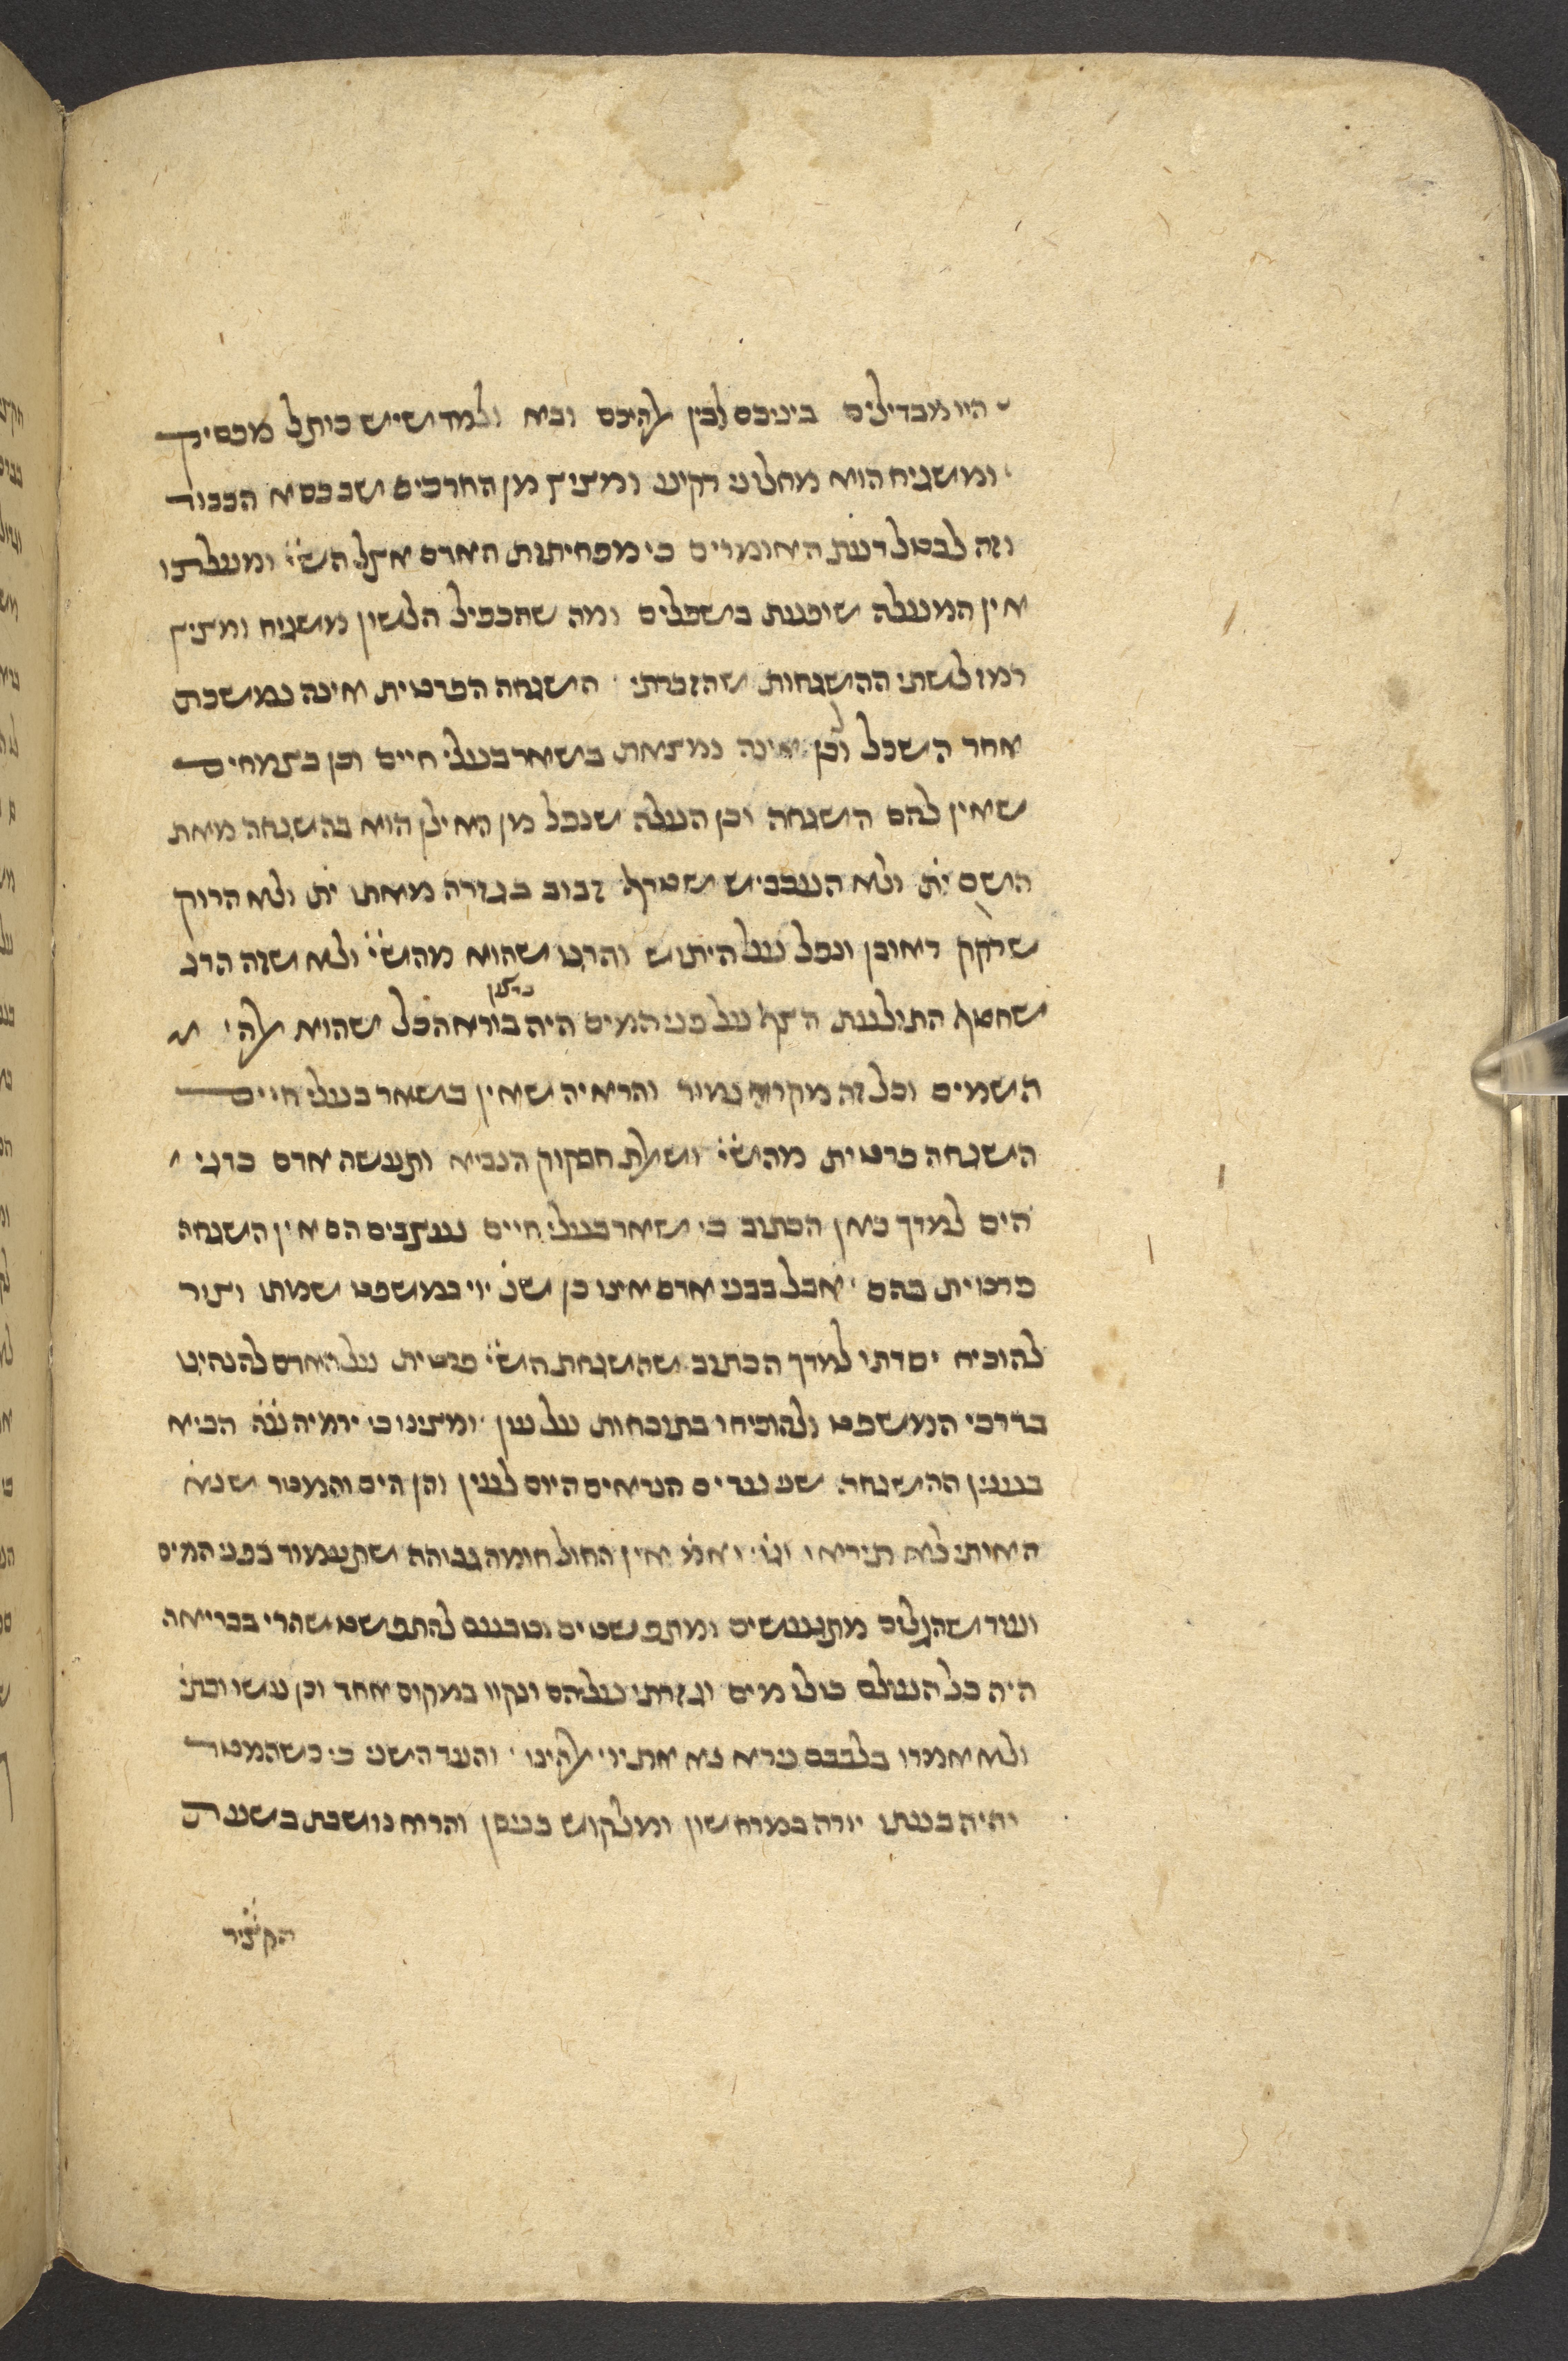 היו מבדילים ביניכם לבין אלהיכם ובא ולמד שיש כותל מפסיק
ומשגיח הוא מחלוני רקיע ומציץ מן החרכים שבכסא הכבוד
וזה לבטל דעת האומרים כי מפחיתות האדם אצל הש״י ומעלתו
אין המעלה שופעת בשפלים ומה שהכפיל הלשון משגיח ומציץ
רמז לשתי ההשגחות שהזכרתי השגחה הפרטית אינה נמשכת
אחר השכל ולכן אינה נמצאת בשאר בעלי חיים וכן בצמחים
שאין להם השגחה וכן העלה שנפל מן האילן הוא בהשגחה מאת
השם ית׳ ולא העכביש שטרף זבוב בגזרה מאתו ית׳ ולא הרוק
שרקק ראובן ונפל על היתוש והרגו שהוא מהש״י ולא שזה הדג
שחטף התולעת הצף על פני המים היה ברצון בורא הכל שהוא אלהי
השמים וכל זה מקרה גמור והראיה שאין בשאר בעלי חיים
השגחה פרטית מהש״י שאלת חבקוק הנביא ותעשה אדם כדגי
הים למדך כאן הכתוב כי שאר בעלי חיים נעזבים הם אין השגחה
פרטית בהם אבל בבני אדם אינו כן שנ׳ יי׳ למשפט שמתו וצור
להוכיח יסדתו למדך הכתוב שהשגחת הש״י פרטית על האדם להנהיגו
בדרכי המשפט ולהוכיחו בתוכחות על עון ומצינו כי ירמיה ע״ה הביא
בענין ההשגחה שני עדים הנראים היום לעין והן הים והמטר שנא׳
האותי לא תיראו וגו׳ אין החול חומה גבוהה שתעמוד בפני המים
ועוד שהגלים מתגעשים ומתפשטים וטבעם להתפשט שהרי בבריאה
היה כל העולם כולו מים וגזרתי עליהם ונקוו במקום אחד וכן עשו וכתי׳
ולא אמרו בלבבם נירא נא את יי׳ אלהינו והעד השני כי כשהמטר
יהיה בעתו יורה במרחשון ומלקוש בניסן והרוח נושבת בשעת
הקציר